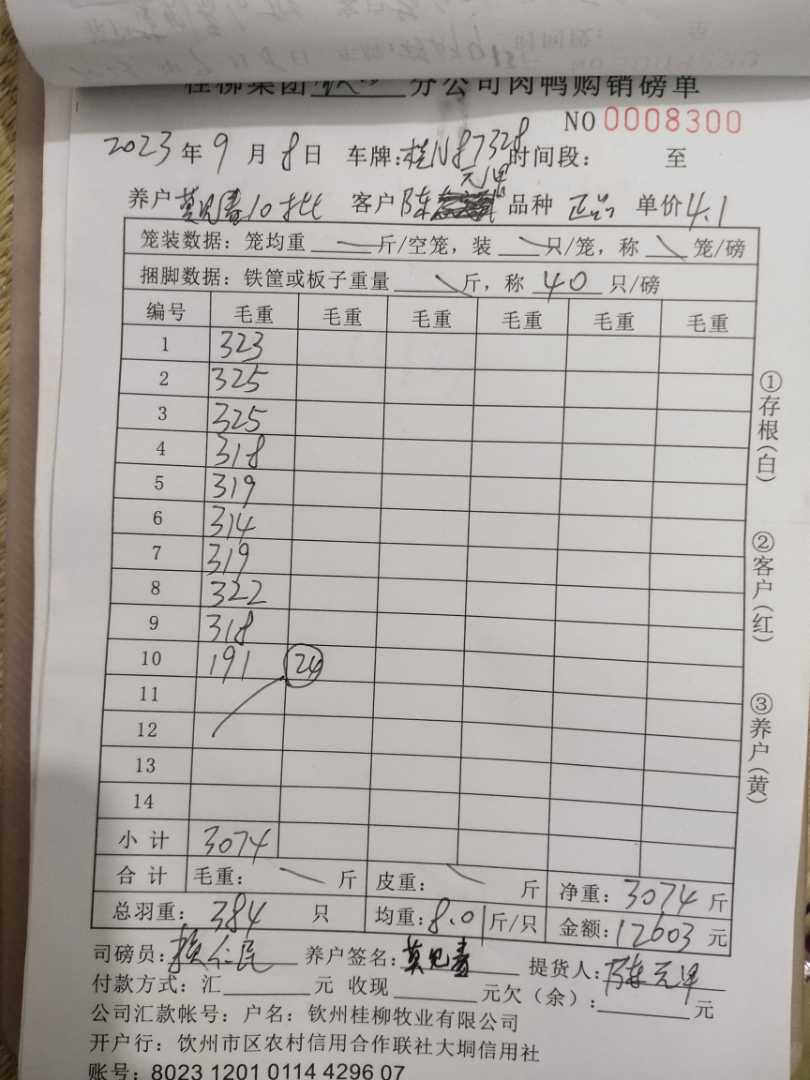 桂柳集团 分公司肉鸭购销磅单
NO 0008300
2023年9月8日 车牌:桂N87328 时间段: 至
养户 10批 客户 陈元 品种 正品 单价 4.1
笼装数据: 笼均重 斤/空笼, 装 只/笼, 称 笼/磅
捆脚数据: 铁筐或板子重量 斤, 称 40 只/磅
编号 毛重 毛重 毛重 毛重 毛重 毛重
1 323
2 325
3 325
4 318
5 319
6 314
7 319
8 322
9 318
10 191 24
11
12
13
14
小计 3074
合计 毛重: 斤 皮重: 斤 净重: 3074 斤
总羽重: 384 只 均重: 8.0 斤/只 金额: 12603 元
司磅员: 仁民 养户签名: 提货人: 陈元
付款方式: 汇 元 收现 元欠(余): 元
公司汇款帐号: 户名: 钦州桂柳牧业有限公司
开户行: 钦州市区农村信用合作联社大垌信用社
账号: 8023 1201 0114 4296 07
①存根(白)
②客户(红)
③养户(黄)